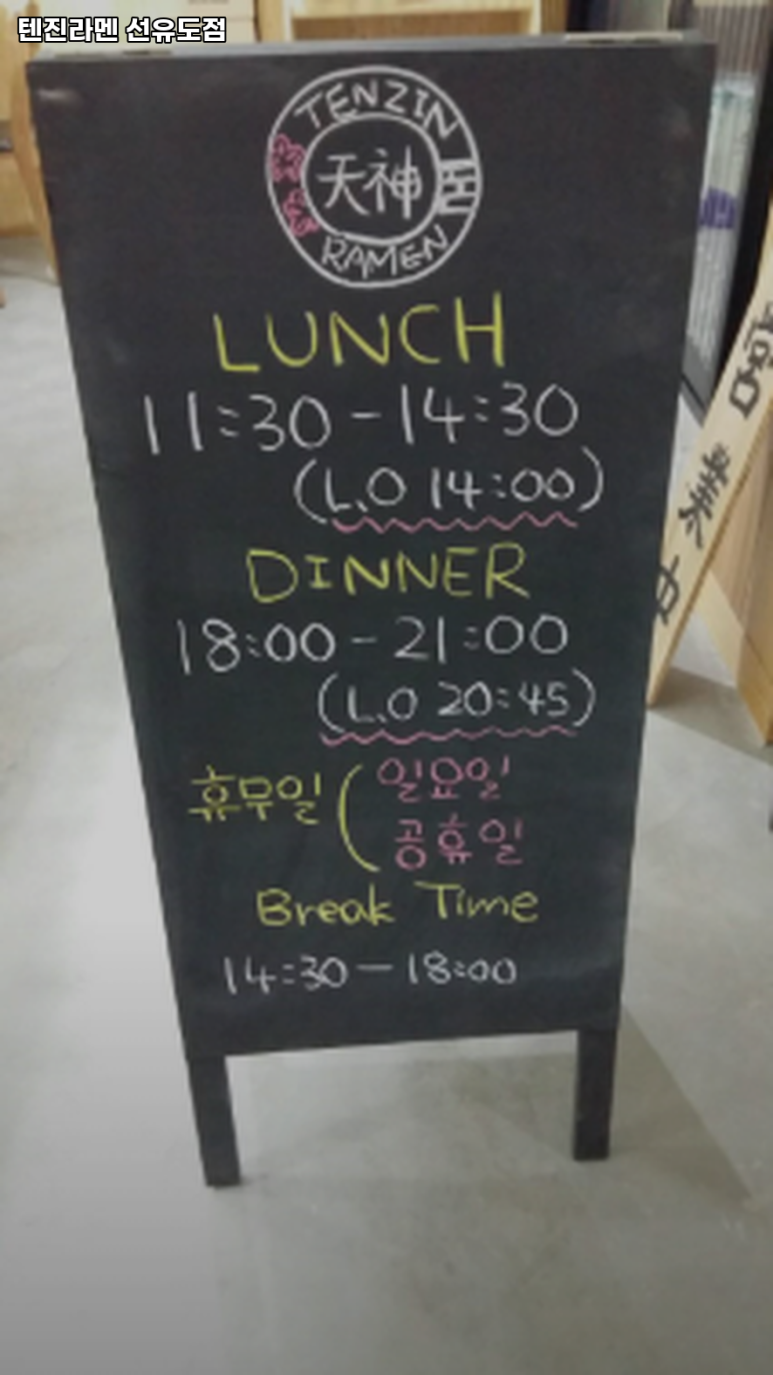 텐진라멘 선유도점
TENZIN
天神
RAMEN
LUNCH
11:30-14:30
(L.O 14:00)
DINNER
18:00-21:00
(L.O 20:45)
휴무일 ( 일요일
공휴일
Break Time
14:30-18:00